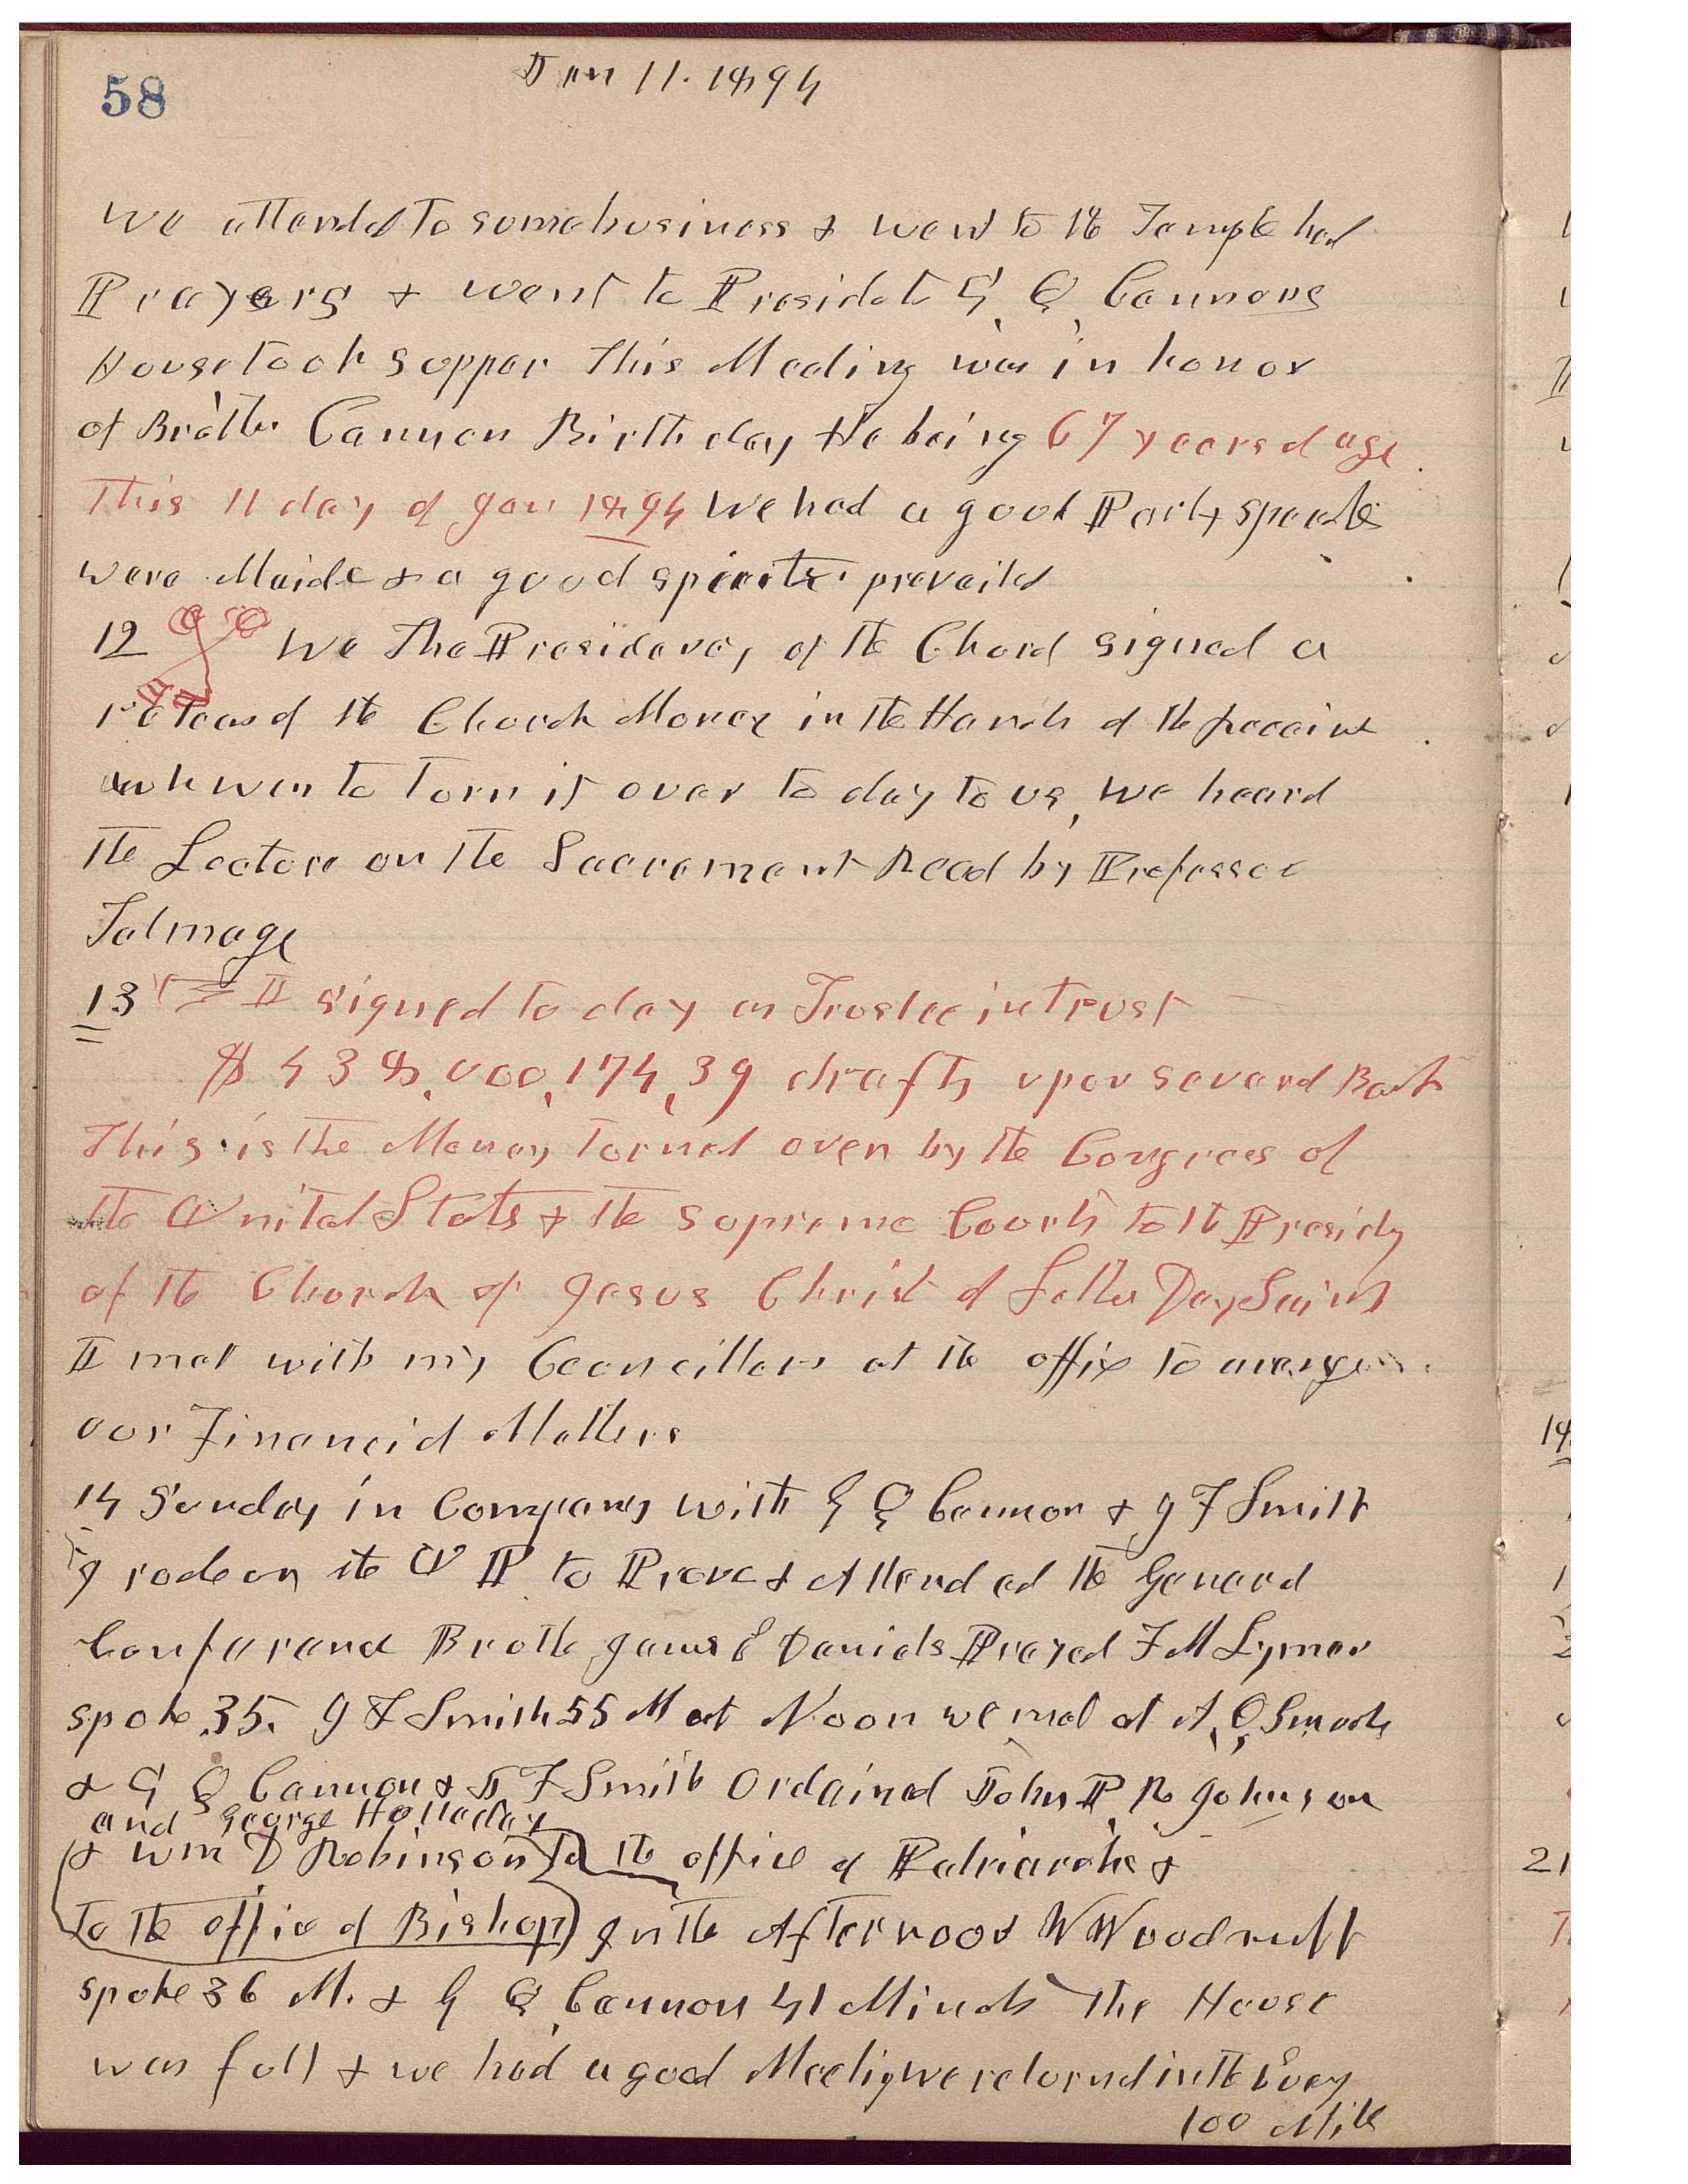 58
Jan 11. 1894
We attended to some business & went to the Temple had
Prayers & went to President G, Q, Cannons
House took supper This Meeting was in honor
of Brother Cannon Birth day He being 67 years of age
This 11 day of Jan 1894 We had a good Party speeches
were Maide & a good spirit prevailed
12 We The Presidency of the Church signed a
release of the Church Money in the Hands of the receiver
who was to Torn it over to day to us, We heard
the Lectore on the Sacrement Read by Professor
Talmage
13 I signed to day as Trostee in trust
$438,000,174,39 drafts upon several Bank
This is the Money torned over by the Congress of
the United States & the Supreme Courts to the Presidy
of the Church of Jesus Christ of Latter Day Saints
I met with my Councillors at the offix to arange
our Financial Matters
14 Sunday in Company with G Q Cannon & J F Smith
I rode on the U P to Provo & Attended the General
Conferance Brother James E Daniels Prayed F M Lyman
spoke 35. J F Smith 55 M at Noon we met at A, O, Smoots
& G Q Cannon & J F Smith Ordained John P. R. Johnson
and George Halladay
& Wm D Robinson to the office of Patriarchs &
to the office of Bishop) In the Afternoon W Woodruff
spoke 36 M. & G Q, Cannon 41 Minuts The House
was full & we had a good Meetig we returnd in the Eveg
100 Mile